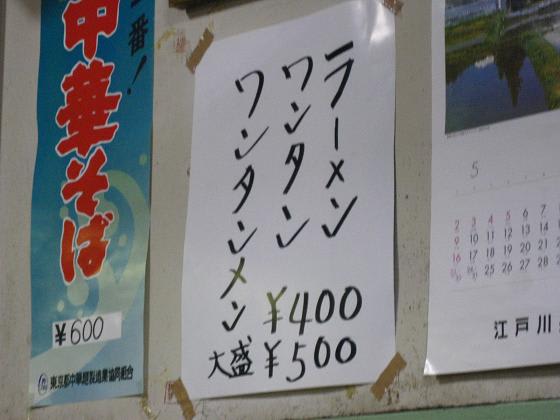 一番!
中華そば
¥600
東京都中華麺製造業協同組合
ラーメン
ワンタン
ワンタンメン
¥400
大盛 ¥500
5
2 3 4 5 6 7 8
9 10 11 12 13 14
16 17 18 19 20 21
24 25 26 27 28
江戸川